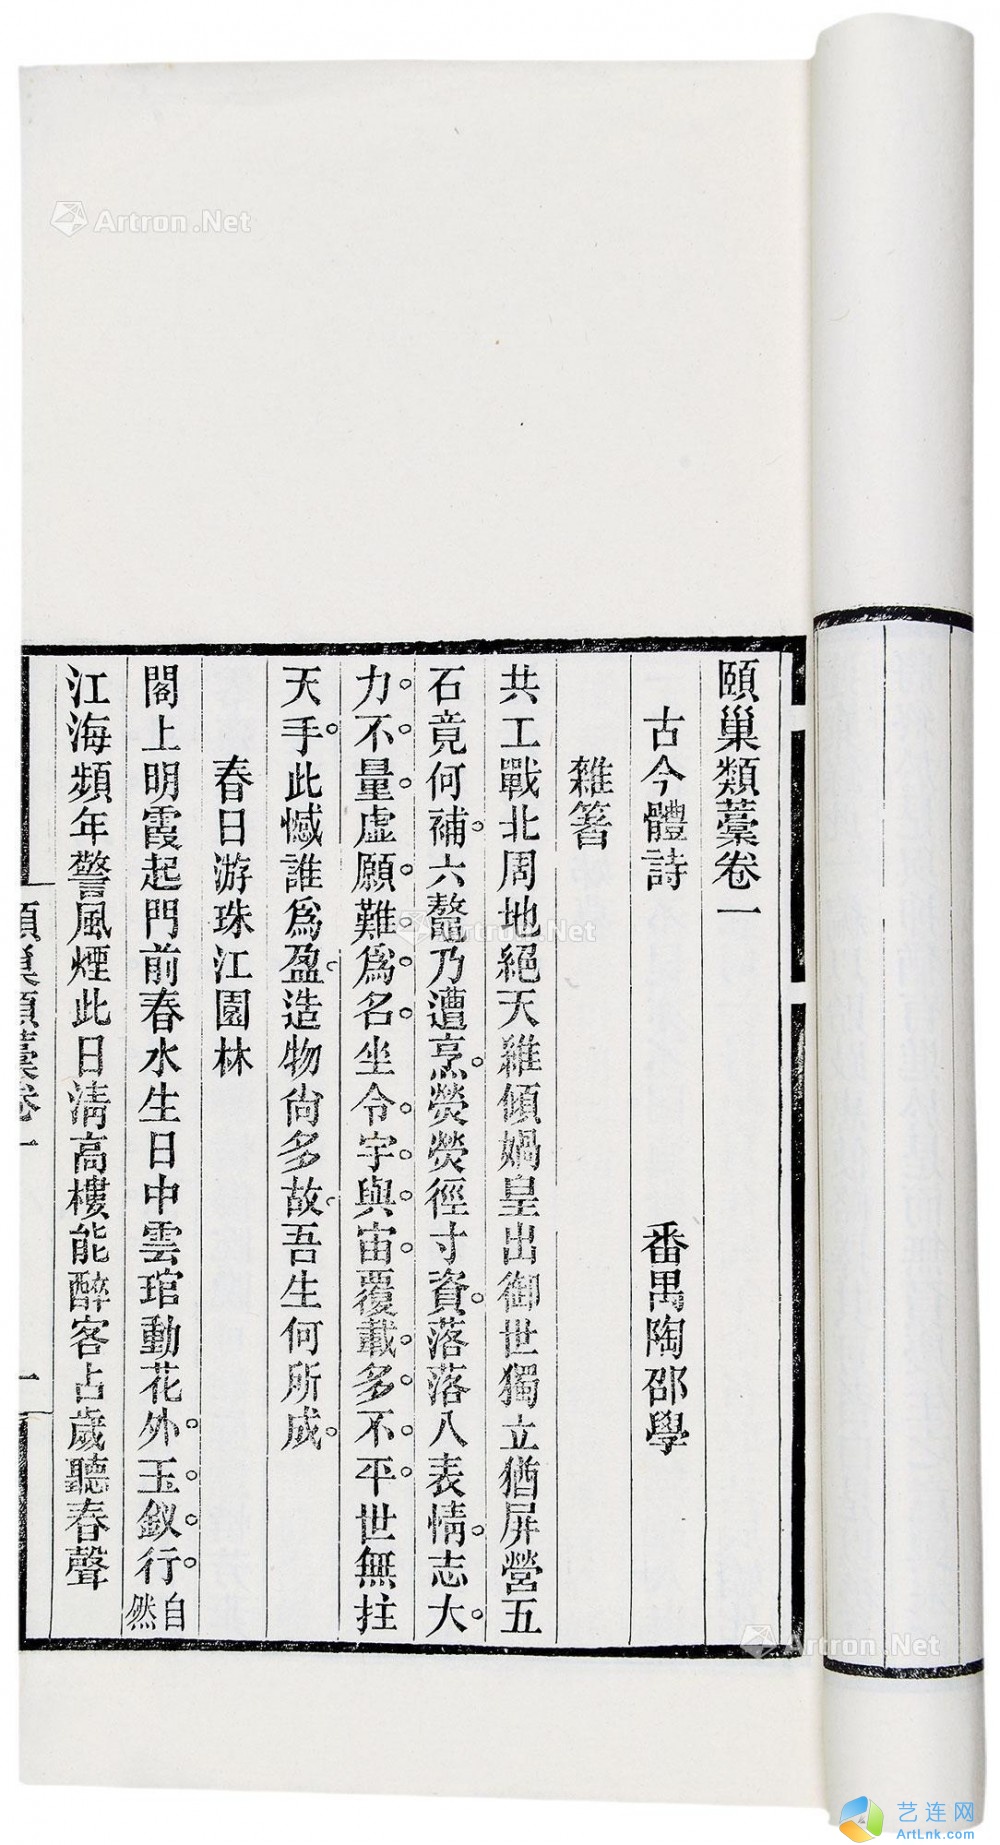 頤巢類藁卷一
古今體詩　番禺陶邵學
雜箸
共工戰北周地絕天維傾媧皇出御世獨立猶屏營五
石竟何補六鼇乃遭烹熒熒徑寸資落落八表情志大
力不量虛願難為名坐令宇與宙覆載多不平世無拄
天手此憾誰為盈造物尙多故吾生何所成
春日游珠江園林
閣上明霞起門前春水生日中雲琯動花外玉釵行自然
江海頻年警風煙此日淸高樓能醉客占歲聽春聲
頤巢類藁卷一
一
Artron.Net
Artron.Net
Artron.Net
艺连网
ArtLnk.com